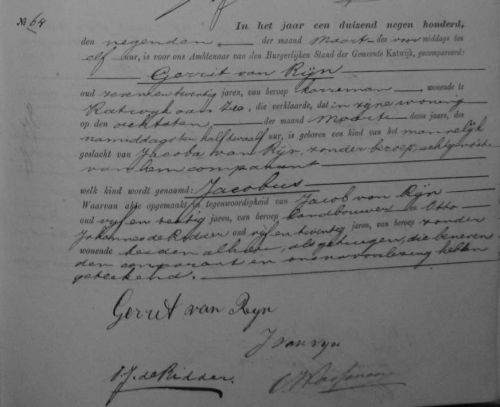 No 64
In het jaar een duizend negen honderd,
den negenden, der maand Maart des voormiddags ten
elf uur, is voor ons Ambtenaar van den Burgerlijken Stand der Gemeente Katwijk, gecompareerd:
Gerrit van Rijn
oud zevenentwintig jaren, van beroep Voerman wonende te
Katwijk aan Zee, die verklaarde, dat in zijne woning
op den achtsten, der maand Maart dezes jaars, des
namiddags ten half twaalf uur, is geboren een kind van het mannelijk
geslacht van Jacoba van Rijn, zonder beroep, echtgenoote
van den comparant
welk kind wordt genaamd: Jacobus
Waarvan akte opgemaakt in tegenwoordigheid van Jacob van Rijn
oud vijf en zestig jaren, van beroep Landbouwer en Otto
Johannes de Ridder oud vijfentwintig jaren, van beroep zonder
wonende beiden alhier, als getuigen, die benevens
den comparant en ons na voorlezing hebben
geteekend.
Gerrit van Ryn
J van ryn
O.J. de Ridder.